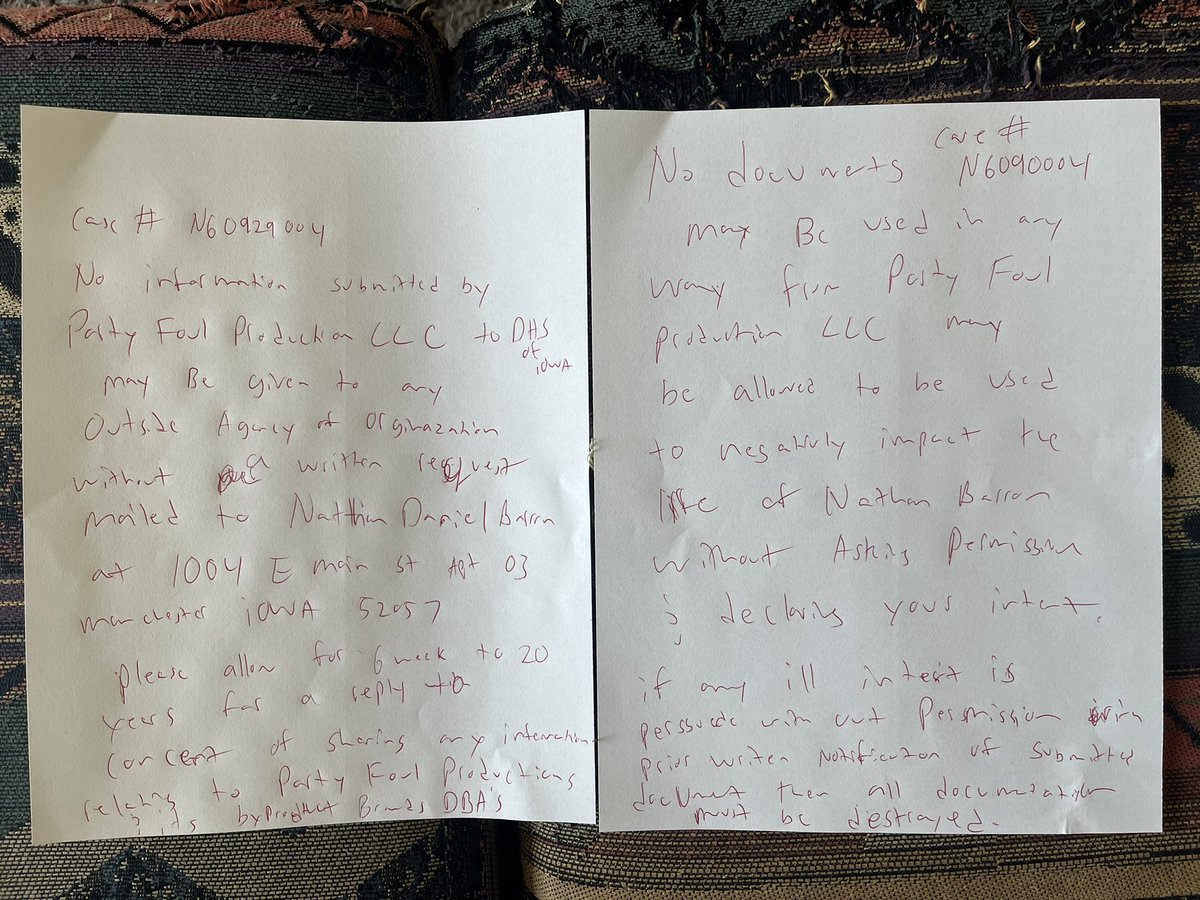 Case # N60929004
No information submitted by
Party Foul Production LLC to DHS
of
iowa
may Be given to any
Outside Agency of Orginazation
without a written request
mailed to Natthan Daniel Barron
at 1004 E main st Apt 03
manchester iowa 52057
please allow for 6 week to 20
years for a reply to
concent of sharing any information
relating to Party Foul Productions
& its byproduct Brands DBA's
Case #
No documents N6090004
may Be used in any
way from Party Foul
production LLC may
be allowed to be used
to negativly impact the
life of Nathan Barron
without Asking Permission
& declaring your intent.
if any ill intent is
perssuede with out Permission
prior writen Notification of submitted
document then all documentation
must be destroyed.